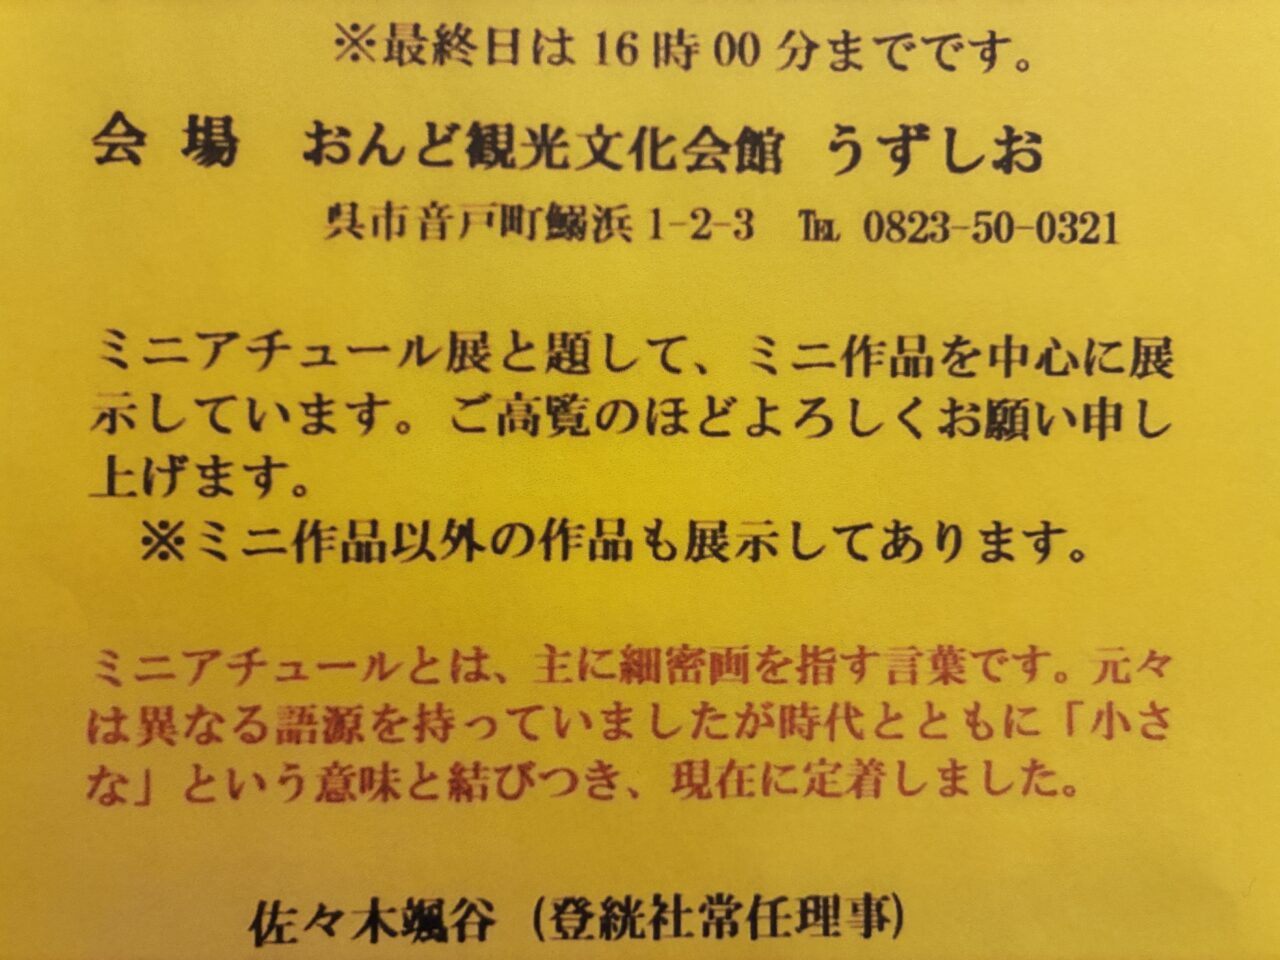 ※最終日は16時00分までです。
会 場　おんど観光文化会館 うずしお
呉市音戸町鰯浜1-2-3　℡ 0823-50-0321
ミニアチュール展と題して、ミニ作品を中心に展
示しています。ご高覧のほどよろしくお願い申し
上げます。
※ミニ作品以外の作品も展示してあります。
ミニアチュールとは、主に細密画を指す言葉です。元々
は異なる語源を持っていましたが時代とともに「小さ
な」という意味と結びつき、現在に定着しました。
佐々木颯谷（登絖社常任理事）